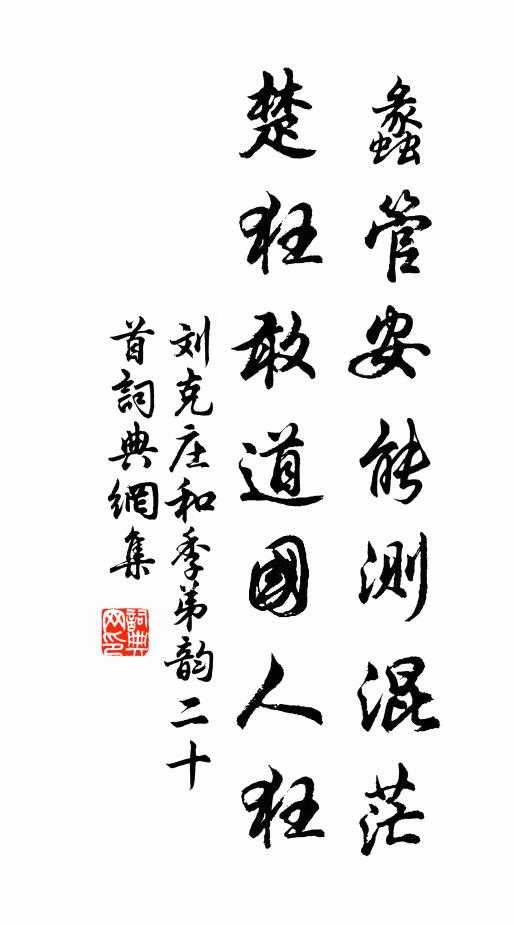 蠡管安能測混茫
楚狂敢道國人狂
刘克庄和季弟韵二十
首詞典網集
詞典网印